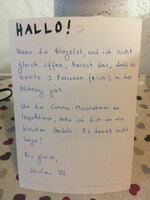 HALLO!
Wenn du klingelst und ich nicht
gleich öffne, heisst das, dass es
bereits 3 Personen (+ich) in der
Wohnung gibt.
Um die Corona-Massnahmen zu
respektieren, bitte ich dich um ein
bisschen Geduld. Es dauert nicht
lange!
Bis gleich,
Giulia W